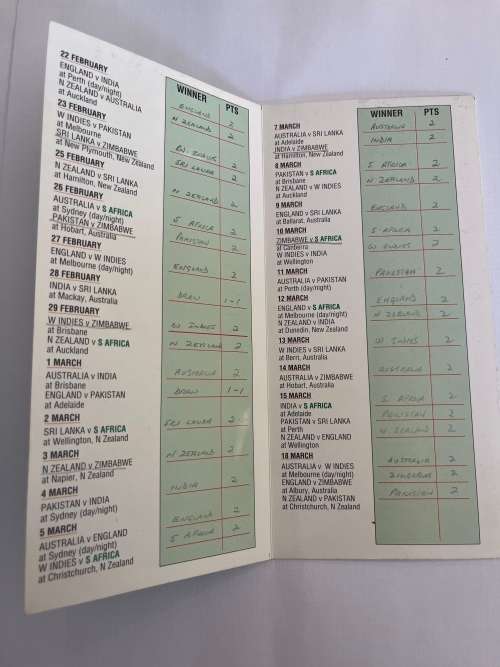 22 FEBRUARY
WINNER PTS
ENGLAND v INDIA
at Perth (day/night)
ENGLAND 2
N ZEALAND v AUSTRALIA
at Auckland
N ZEALAND 2
23 FEBRUARY
W INDIES v PAKISTAN
at Melbourne
W. INDIES 2
SRI LANKA v ZIMBABWE
at New Plymouth, New Zealand
SRI LANKA 2
25 FEBRUARY
N ZEALAND v SRI LANKA
at Hamilton, New Zealand
N ZEALAND 2
26 FEBRUARY
AUSTRALIA v S AFRICA
at Sydney (day/night)
S AFRICA 2
PAKISTAN v ZIMBABWE
at Hobart, Australia
PAKISTAN 2
27 FEBRUARY
ENGLAND v W INDIES
at Melbourne (day/night)
ENGLAND 2
28 FEBRUARY
INDIA v SRI LANKA
at Mackay, Australia
DRAW 1-1
29 FEBRUARY
W INDIES v ZIMBABWE
at Brisbane
W INDIES 2
N ZEALAND v S AFRICA
at Auckland
N ZEALAND 2
1 MARCH
AUSTRALIA v INDIA
at Brisbane
AUSTRALIA 2
ENGLAND v PAKISTAN
at Adelaide
DRAW 1-1
2 MARCH
SRI LANKA v S AFRICA
at Wellington, N Zealand
SRI LANKA 2
3 MARCH
N ZEALAND v ZIMBABWE
at Napier, N Zealand
N ZEALAND 2
4 MARCH
PAKISTAN v INDIA
at Sydney (day/night)
INDIA 2
5 MARCH
AUSTRALIA v ENGLAND
at Sydney (day/night)
ENGLAND 2
W INDIES v S AFRICA
at Christchurch, N Zealand
S AFRICA 2
WINNER PTS
7 MARCH
AUSTRALIA v SRI LANKA
at Adelaide
AUSTRALIA 2
INDIA v ZIMBABWE
at Hamilton, New Zealand
INDIA 2
8 MARCH
PAKISTAN v S AFRICA
at Brisbane
S AFRICA 2
N ZEALAND v W INDIES
at Auckland
N. ZEALAND 2
9 MARCH
ENGLAND v SRI LANKA
at Ballarat, Australia
ENGLAND 2
10 MARCH
ZIMBABWE v S AFRICA
at Canberra
S AFRICA 2
W INDIES v INDIA
at Wellington
W INDIES 2
11 MARCH
AUSTRALIA v PAKISTAN
at Perth (day/night)
PAKISTAN 2
12 MARCH
ENGLAND v S AFRICA
at Melbourne (day/night)
ENGLAND 2
N ZEALAND v INDIA
at Dunedin, New Zealand
N ZEALAND 2
13 MARCH
W INDIES v SRI LANKA
at Berri, Australia
W INDIES 2
14 MARCH
AUSTRALIA v ZIMBABWE
at Hobart, Australia
AUSTRALIA 2
15 MARCH
INDIA v S AFRICA
at Adelaide
S AFRICA 2
PAKISTAN v SRI LANKA
at Perth
PAKISTAN 2
N ZEALAND v ENGLAND
at Wellington
N ZEALAND 2
18 MARCH
AUSTRALIA v W INDIES
at Melbourne (day/night)
AUSTRALIA 2
ENGLAND v ZIMBABWE
at Albury, Australia
ZIMBABWE 2
N ZEALAND v PAKISTAN
at Christchurch, N Zealand
PAKISTAN 2